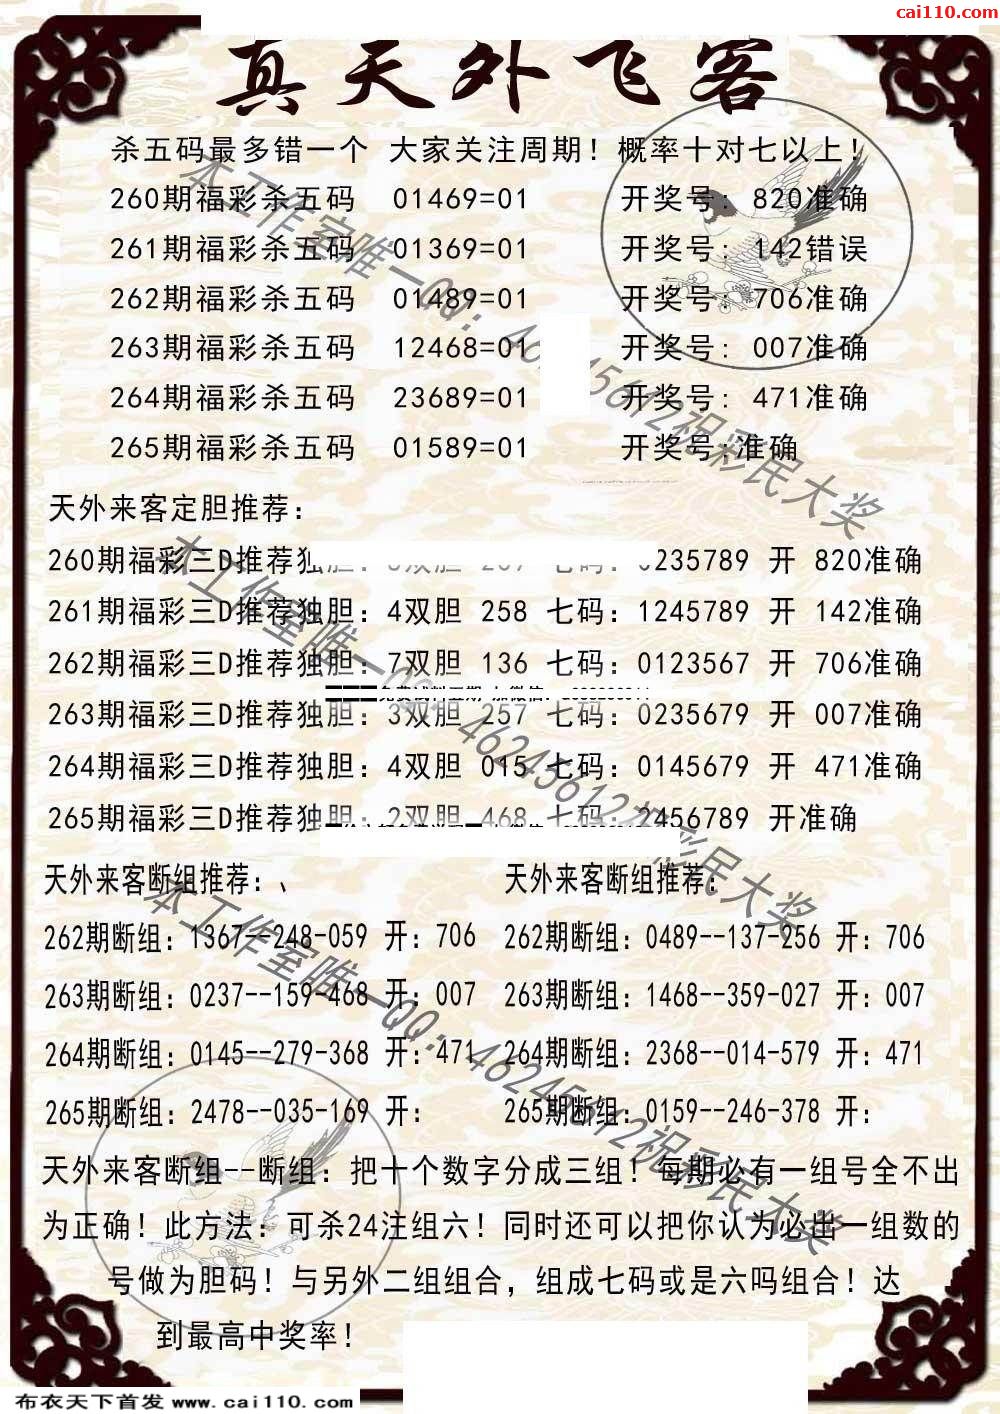 cai110.com
真天外飞客
杀五码最多错一个 大家关注周期！概率十对七以上！
260期福彩杀五码 01469=01 开奖号: 820准确
261期福彩杀五码 01369=01 开奖号: 142错误
262期福彩杀五码 01489=01 开奖号: 706准确
263期福彩杀五码 12468=01 开奖号: 007准确
264期福彩杀五码 23689=01 开奖号: 471准确
265期福彩杀五码 01589=01 开奖号:准确
天外来客定胆推荐:
260期福彩三D推荐独胆: 双胆 七码: 0235789 开 820准确
261期福彩三D推荐独胆: 4双胆 258 七码: 1245789 开 142准确
262期福彩三D推荐独胆: 7双胆 136 七码: 0123567 开 706准确
263期福彩三D推荐独胆: 3双胆 257 七码: 0235679 开 007准确
264期福彩三D推荐独胆: 4双胆 015 七码: 0145679 开 471准确
265期福彩三D推荐独胆: 2双胆 468 七码: 2456789 开准确
天外来客断组推荐:、 天外来客断组推荐:
262期断组: 1367--248-059 开: 706 262期断组: 0489--137-256 开: 706
263期断组: 0237--159-468 开: 007 263期断组: 1468--359-027 开: 007
264期断组: 0145--279-368 开: 471 264期断组: 2368--014-579 开: 471
265期断组: 2478--035-169 开: 265期断组: 0159--246-378 开:
天外来客断组--断组: 把十个数字分成三组！每期必有一组号全不出
为正确！此方法: 可杀24注组六！同时还可以把你认为必出一组数的
号做为胆码！与另外二组组合，组成七码或是六吗组合！达
到最高中奖率！
本工作室唯一QQ: 46245612祝彩民大奖
本工作室唯一QQ: 46245612祝彩民大奖
本工作室唯一QQ: 46245612祝彩民大奖
布衣天下首发 www.cai110.com